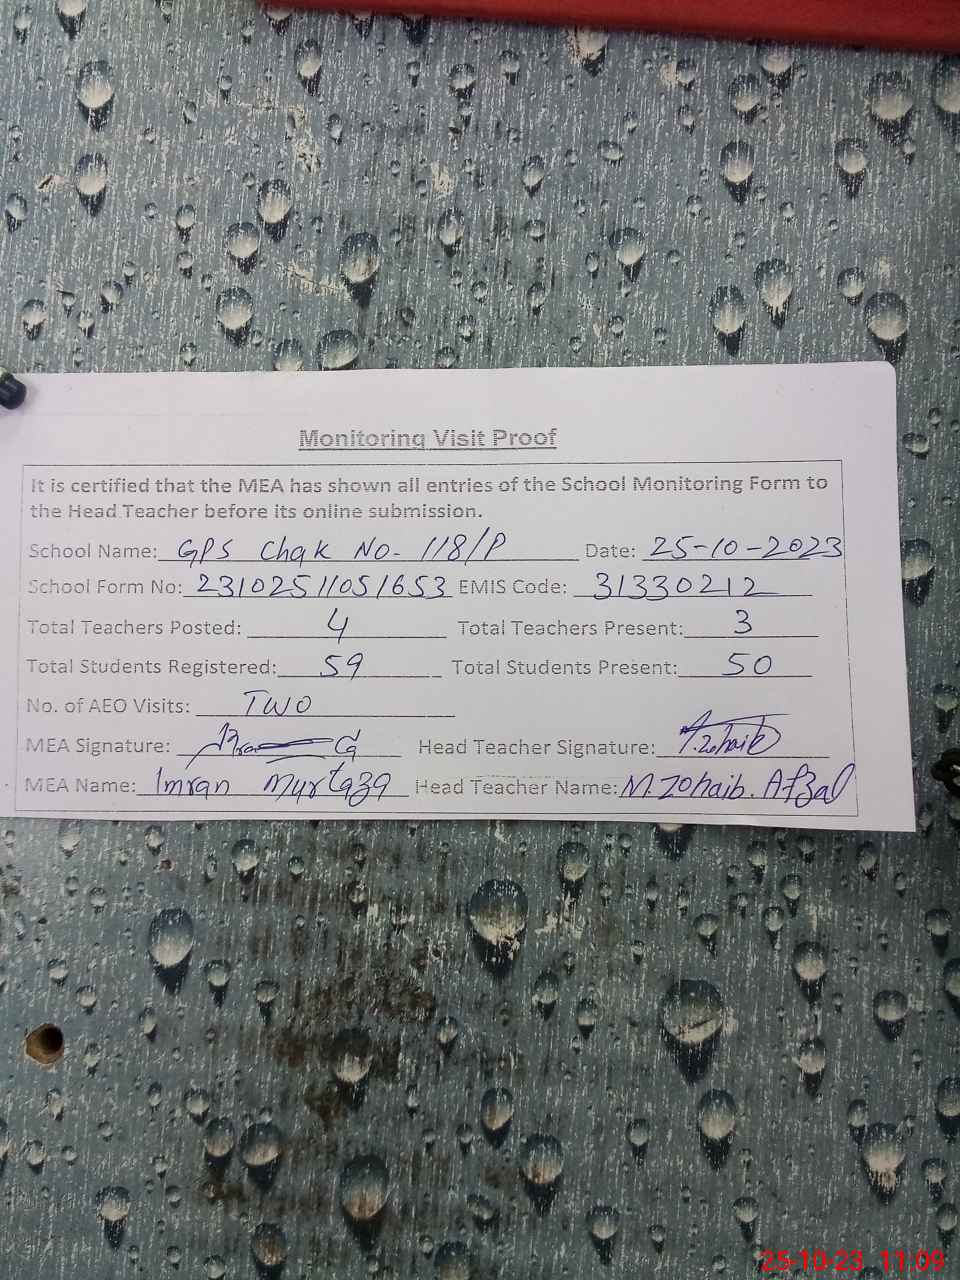 Monitoring Visit Proof
It is certified that the MEA has shown all entries of the School Monitoring Form to
the Head Teacher before its online submission.
School Name: GPS Chak No- 118/P Date: 25-10-2023
School Form No: 23102511051653 EMIS Code: 31330212
Total Teachers Posted: 4 Total Teachers Present: 3
Total Students Registered: 59 Total Students Present: 50
No. of AEO Visits: TWO
MEA Signature: Head Teacher Signature: A.Zohaib
MEA Name: Imran Murtaza Head Teacher Name: M.Zohaib.Afzal
25-10-23 11:09